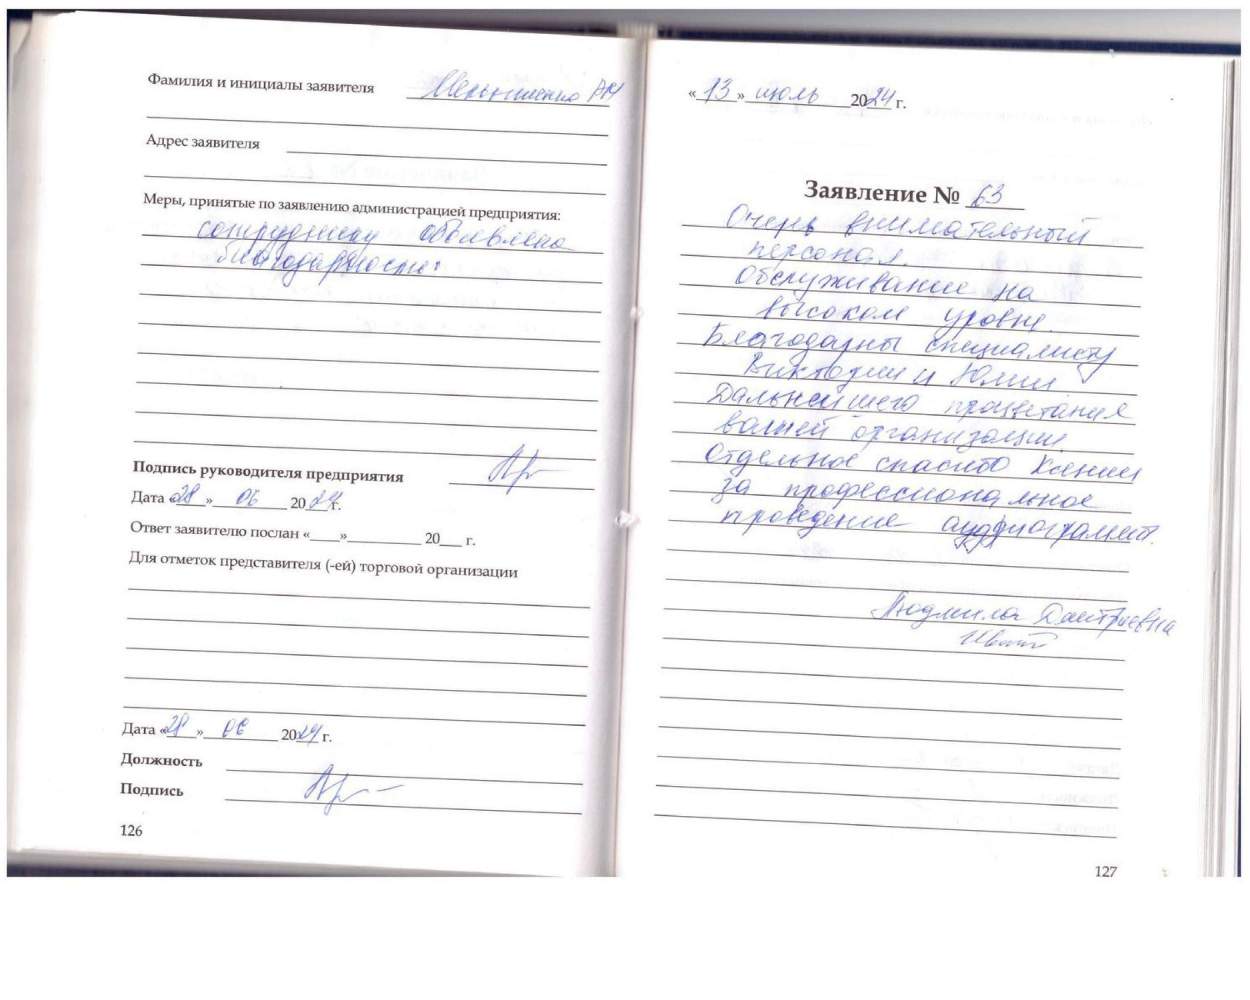 Фамилия и инициалы заявителя
Адрес заявителя
Меры, принятые по заявлению администрацией предприятия:
сотруднику объявлена
благодарность.
Подпись руководителя предприятия
Дата «28» 06 2024 г.
Ответ заявителю послан «____»__________ 20___ г.
Для отметок представителя (-ей) торговой организации
Дата «28» 06 2024 г.
Должность
Подпись
126
«13» июль 2024 г.
Заявление № 63
Очень внимательный
персонал.
Обслуживание на
высоком уровне.
Благодарны специалисту
Виктории и Юлии
Дальнейшего процветания
вашей организации
Отдельное спасибо Ксении
за профессиональное
проведение аудиограммы.
Людмила Дмитриевна
127